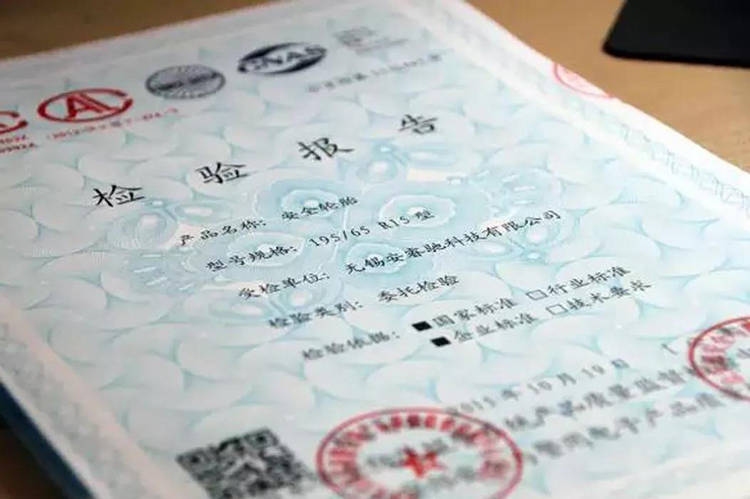 CNAS
检验报告
产品名称: 安全轮胎
型号规格: 195/65 R15 型
受检单位: 无锡安睿驰科技有限公司
检验类别: 委托检验
检验依据: ■国家标准 □行业标准
■企业标准 □技术要求
2015 年 10 月 19 日
产品质量监督
电子产品质